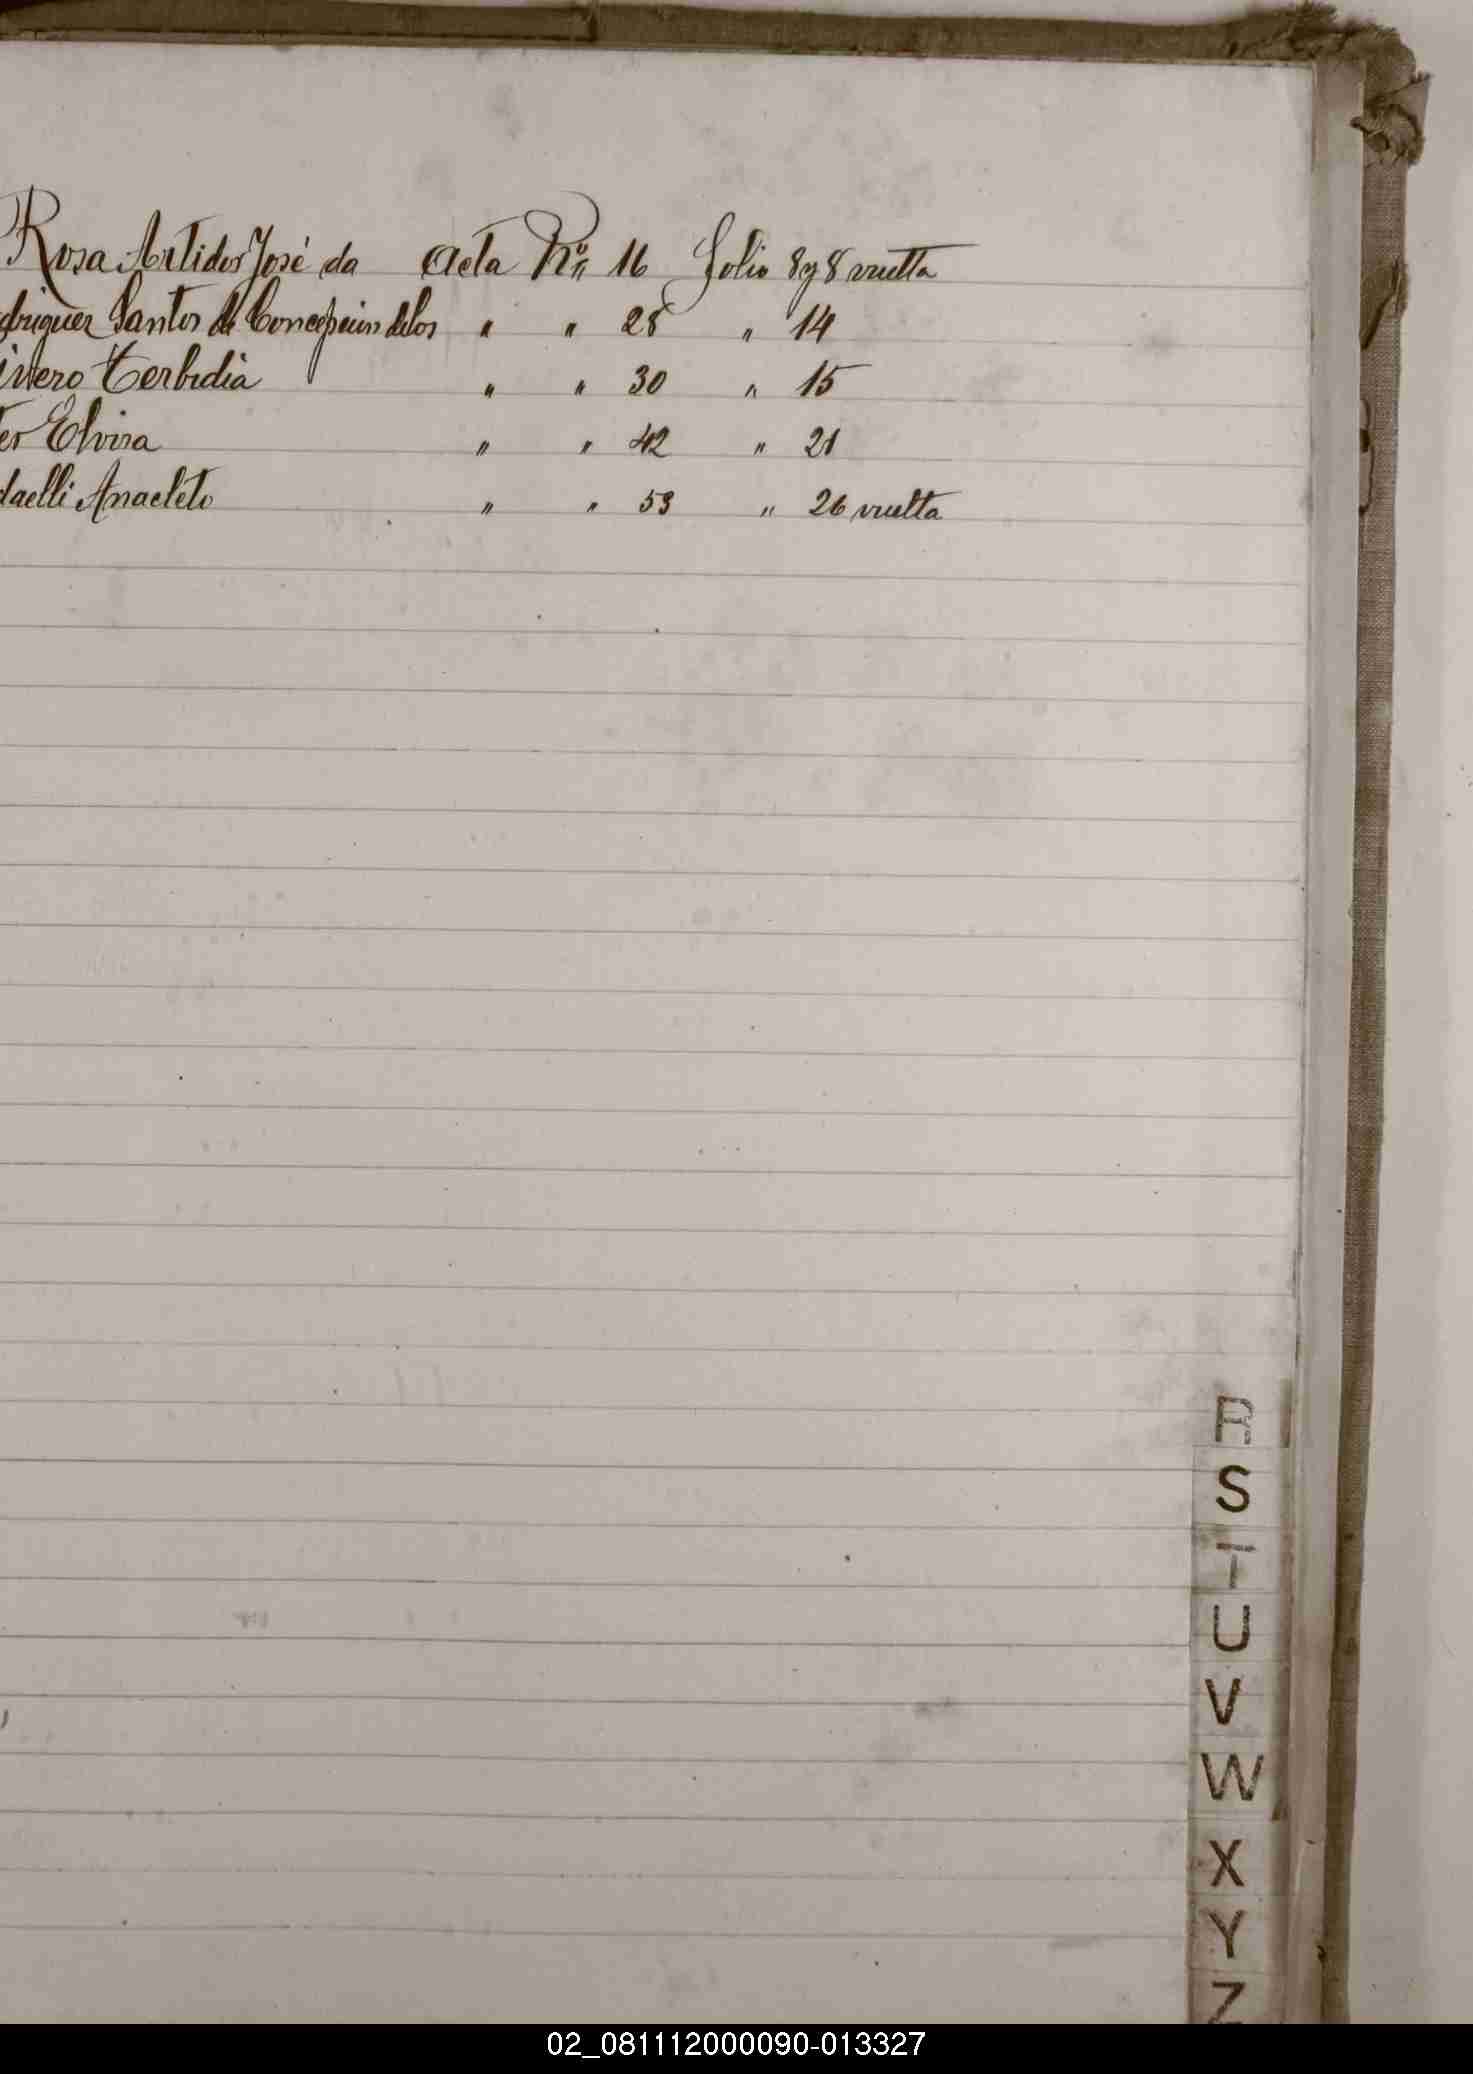 Rosa Artidor José da Acta Nº 16 Folio 8 y 8 vuelta
driguez Santos de Concepción delos " " 28 " 14
ivero Terbidia " " 30 " 15
ter Elvira " " 42 " 21
daelli Anacleto " " 53 " 26 vuelta
R
S
T
U
V
W
X
Y
Z
02_081112000090-013327